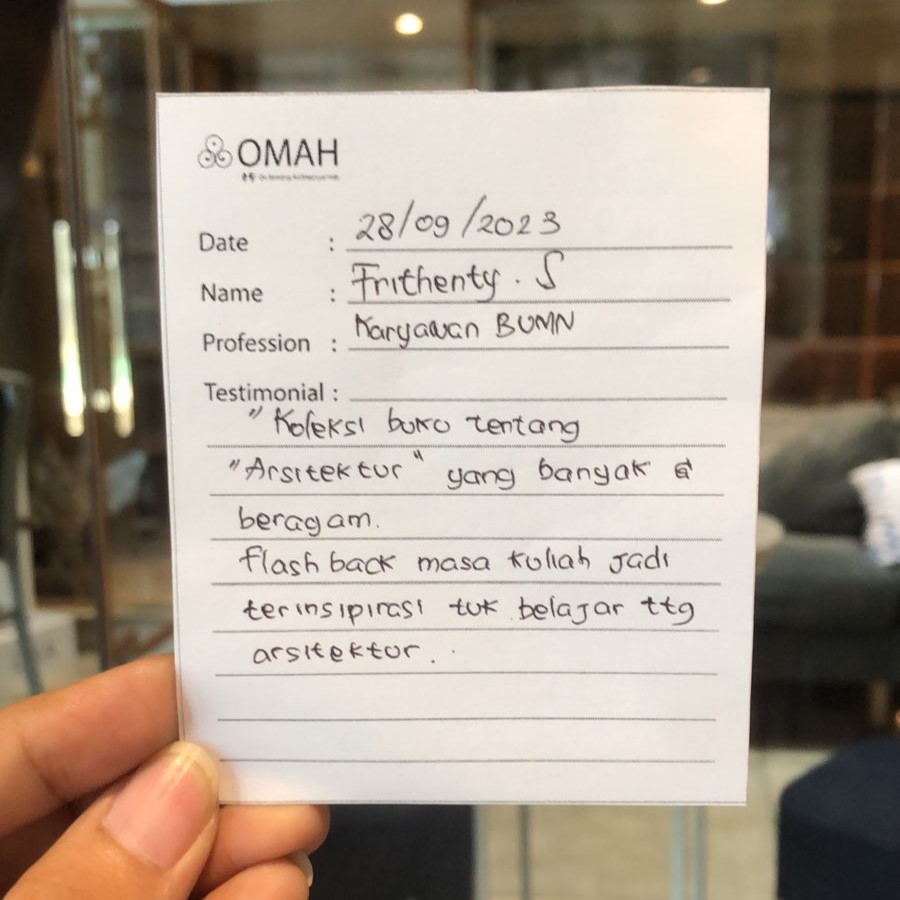 OMAH
Date : 28/09/2023
Name : Frithenty. S
Profession : Karyawan BUMN
Testimonial :
" Koleksi buku tentang
"Arsitektur" yang banyak &
beragam.
flash back masa kuliah jadi
terinsipirasi tuk belajar ttg
arsitektur.